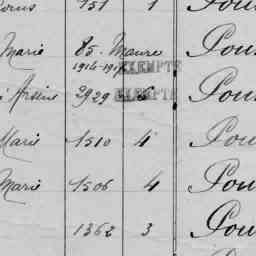 751 1
Marie 85. Maure Pou
1914-191 EXEMPTÉ
Arsène 2929 EXEMPTÉ Pou
Marie 1510 4 Pou
Marie 1506 4 Pou
1362 3 Pou